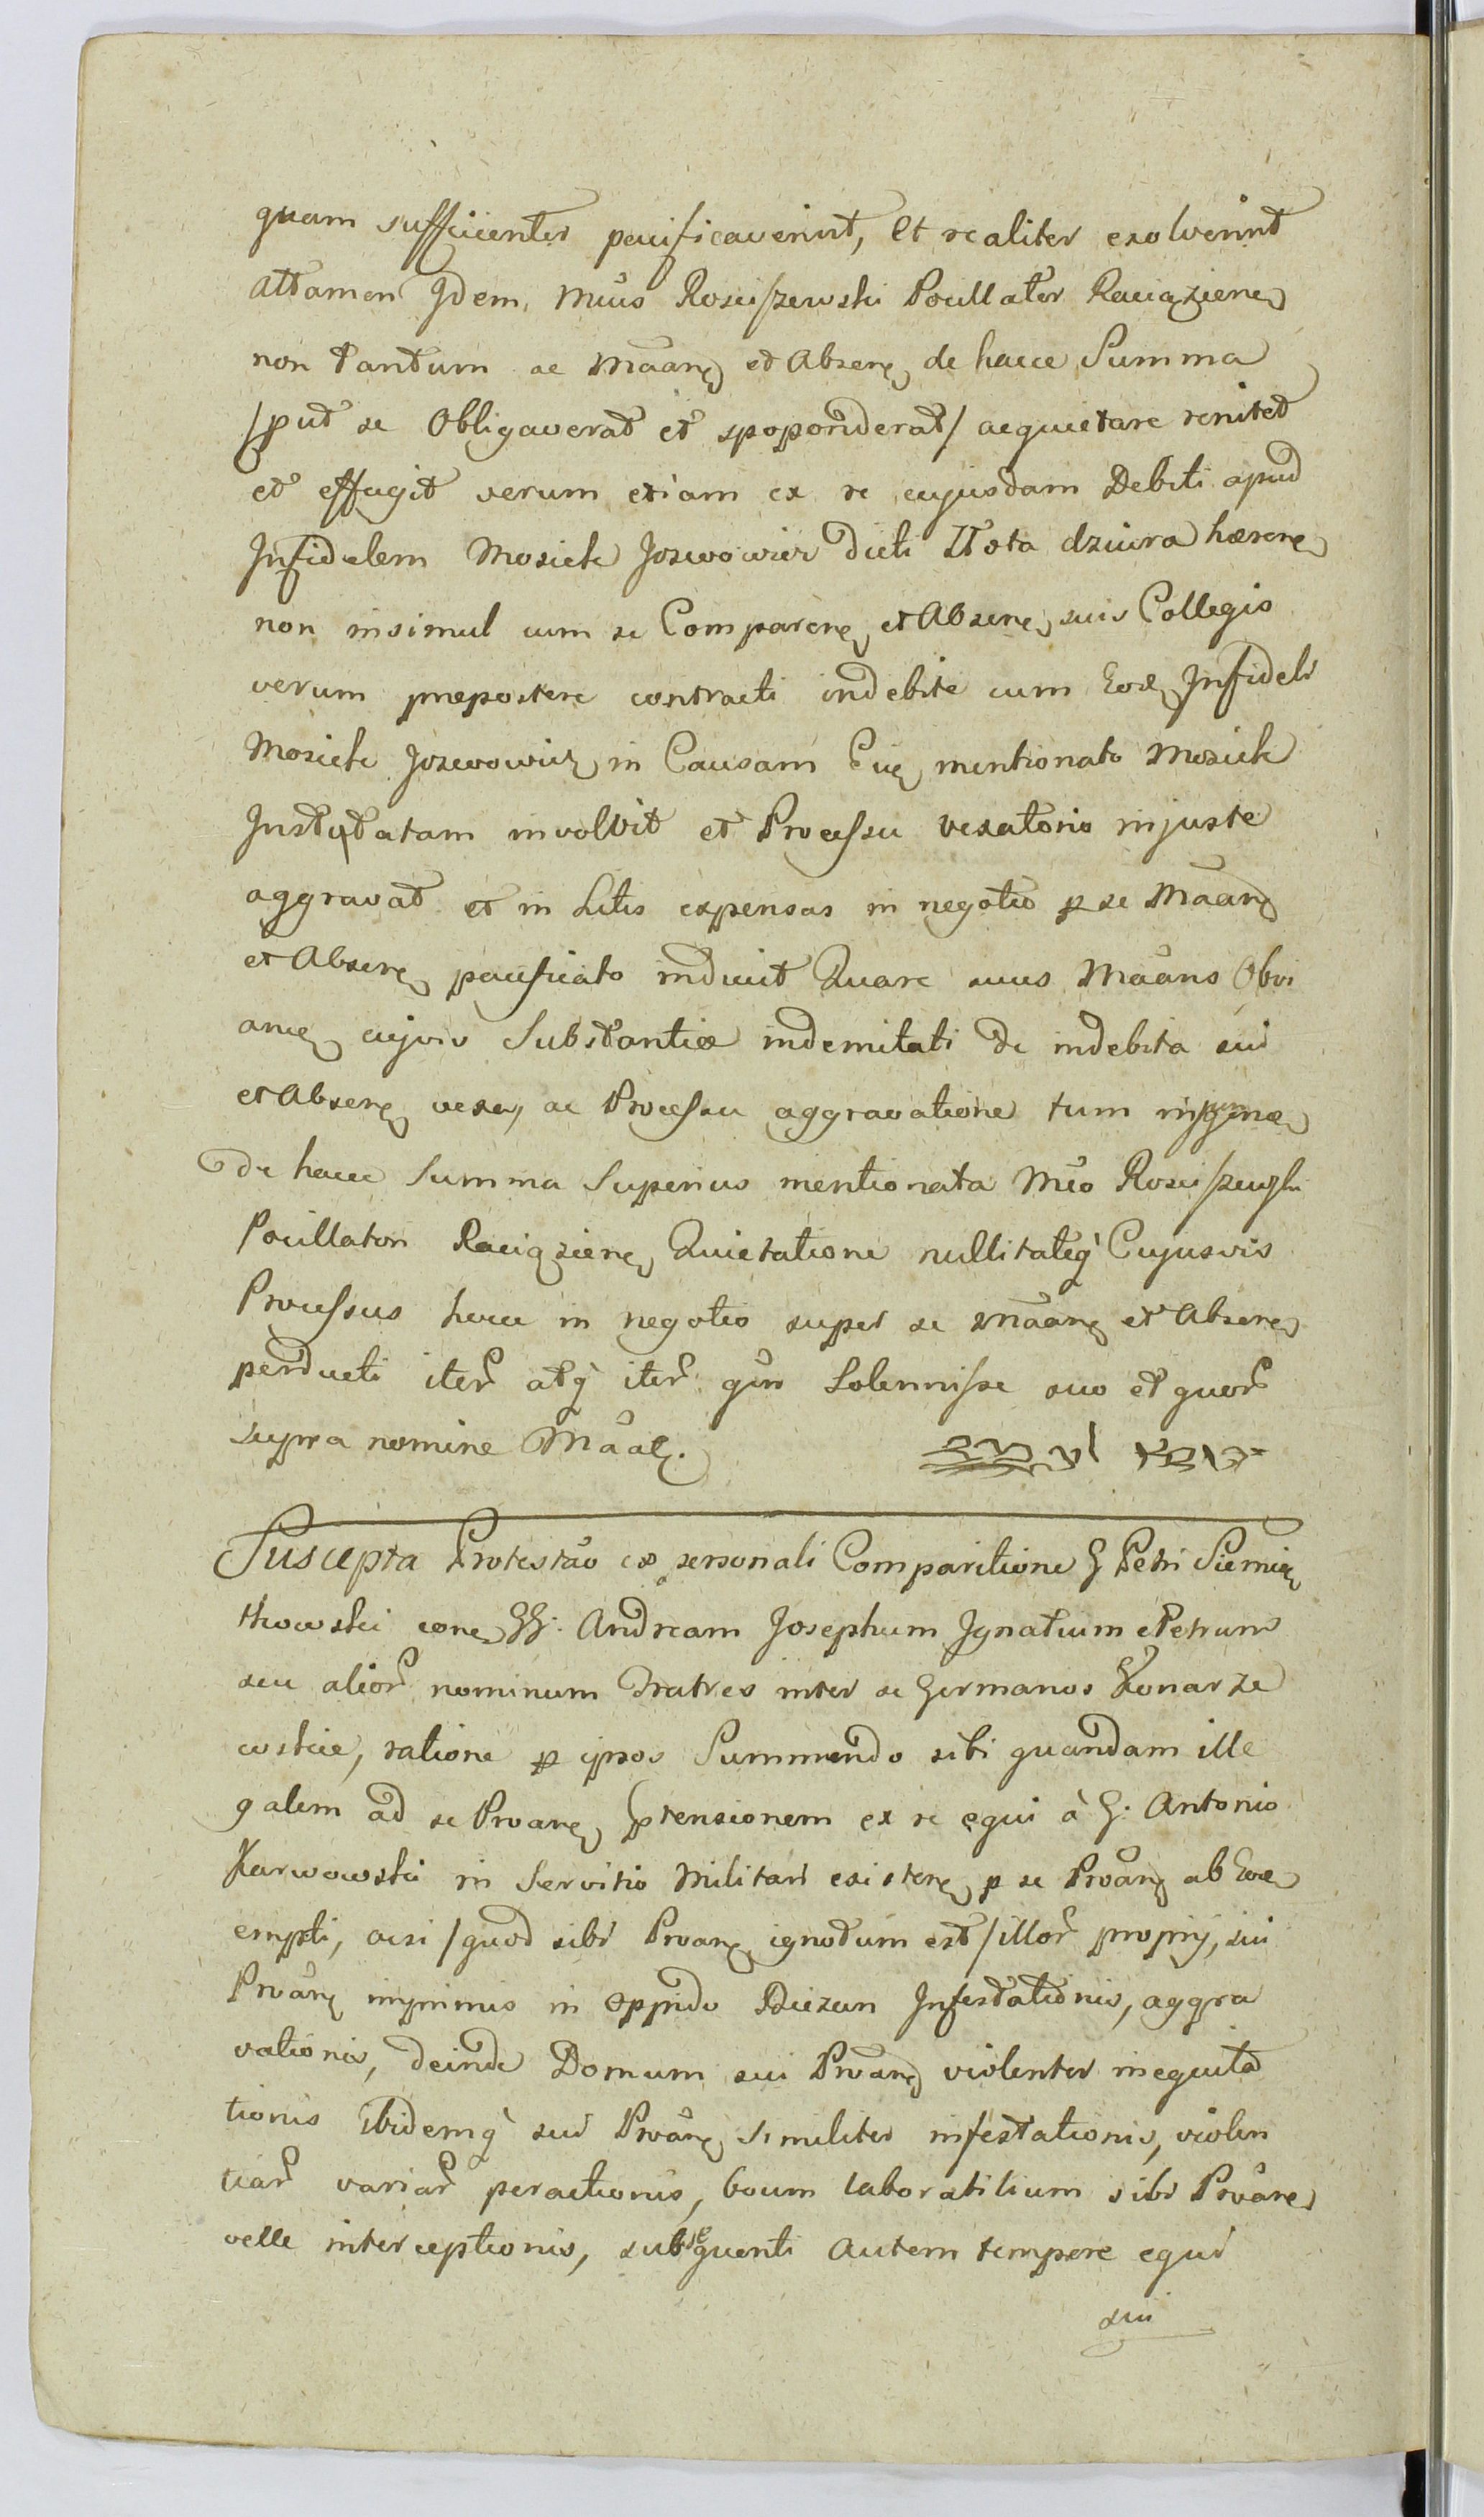 quam sufficienter pacificaverint, Et realiter exolverint
attamen Idem Mcus Rosciszewski Pocillator Raciązienę
non tantum se Maanę et Absenę de hacce Summa
/put se Obligaverat et spoponderat/ acquietare renitet
et effugit verum etiam ex re cujusdam Debiti apud
Infidelem Mosiek Joswowicz dicti Złota dziura hærenę
non insimul cum se Comparenę et Absenę suis Collegis
verum prepostere contracti indebite cum Eodę Infideli
Mosiek Joswowicz in Causam Eię mentionato Mosiek
Instytatam involvit et Processu vexatorio injuste
aggravat et in Litis expensas in negotio p se Maanę
et Absenę pacificato induit Quare suus Maans Obvi
anę cujvis Substantiæ indemitati de indebita sui
et Absenę vexaę ac Processu aggravatione tum
de hacce Summa Superius mentionata Mco Rosciszewski
Pocillatori Raciązienę Quietatione nullitateq Cujusvis
Processus hocce in negotio super se Maanę et Absenę
perducti iter atq iter qm Solennisse suo et quor
supra nomine Maat.
Suscepta Protestao ex personali Comparitione G Petri Siemią
tkowski conę GG. Andream Josephum Ignatium et Petrum
seu alior nominum Fratres inter se Germanos Konarze
wskie, ratione p ipsos Summendo sibi quandam ille
galem ad se Proanę ptensionem ex re equi à G. Antonio
Karwowski in Servitio Militari existenę p se Proanę ab Eodę
empti, acsi /quod sibi Proanę ignotum est/ illor proprij, sui
Proanę inprimis in oppido Biezun Infestationis, aggra
vationis, deinde Domum sui Proanę violenter inequita
tionis Ibidemq sui Proanę similiter infestationis, violen
tiar variar peractionis, boum laboratilium sibi Proanę
velle interceptionis, subsequenti autem tempore equi
sui